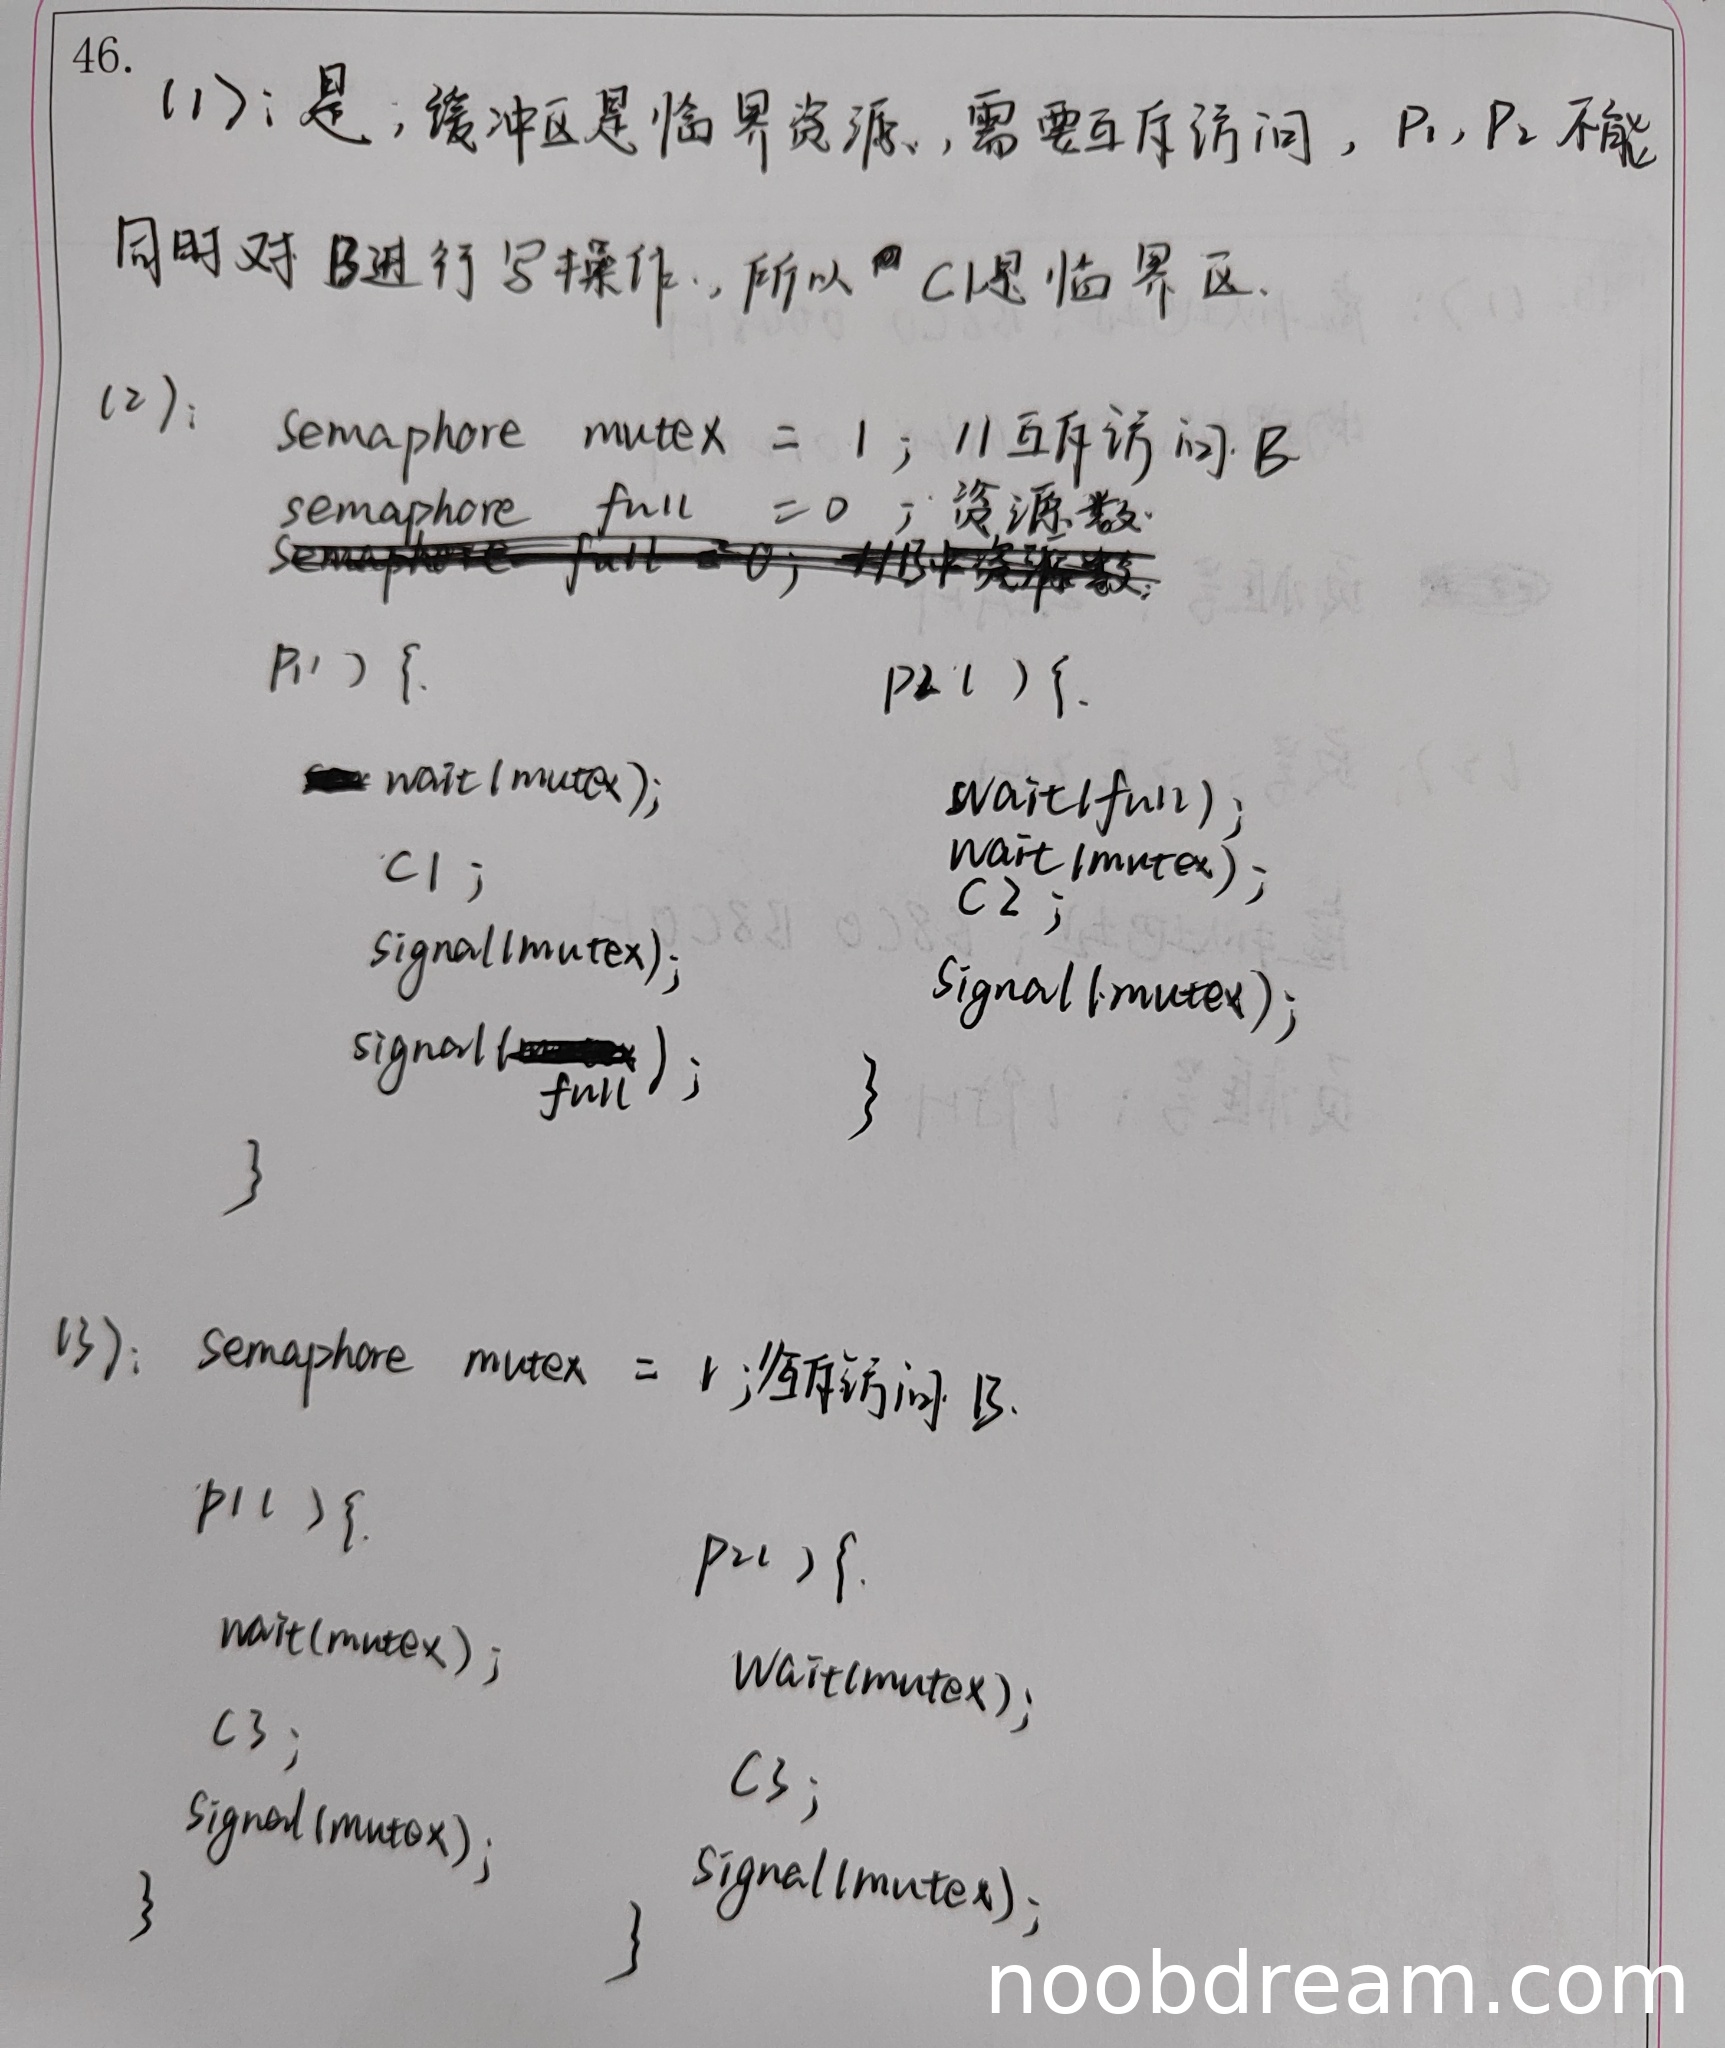 46.
(1): 是,缓冲区是临界资源,需要互斥访问,P1,P2不能
同时对B进行写操作,所以 C1是临界区.
(2):
semaphore mutex = 1; //互斥访问B
semaphore full = 0; 资源数.
semaphore full = 0; //B中资源数.
P1( ) {
P2( ) {
wait(mutex);
wait(full);
wait(mutex);
C1;
C2;
signal(mutex);
signal(mutex);
signal( full );
}
}
(3): semaphore mutex = 1; //互斥访问B.
P1( ) {
P2( ) {
wait(mutex);
wait(mutex);
C3;
C3;
signal(mutex);
signal(mutex);
}
}
noobdream.com